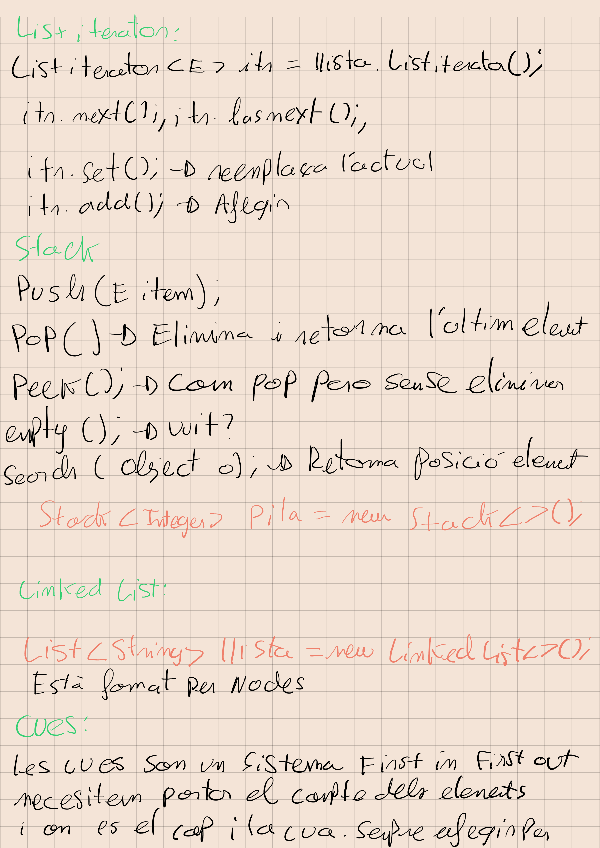 List iterator:
List iterator <E> itr = llista. List iterator();
itr. next(); itr. hasnext ();
itr. set(); → reemplaça l'actual
itr. add(); → Afegir
Stack
Push (E item);
POP() → Elimina i retorna l'últim element
Peek(); → Com pop pero sense eliminar
empty (); → vuit?
Search ( object o); → Retorna posició element
Stack <Integer> Pila = new Stack<>();
Linked List:
List <String> llista = new Linked List<>();
Està format per Nodes
Cues:
Les cues son un sistema First in First out
necesitem portar el compte dels elements
i on es el cap i la cua. Sempre afegir per